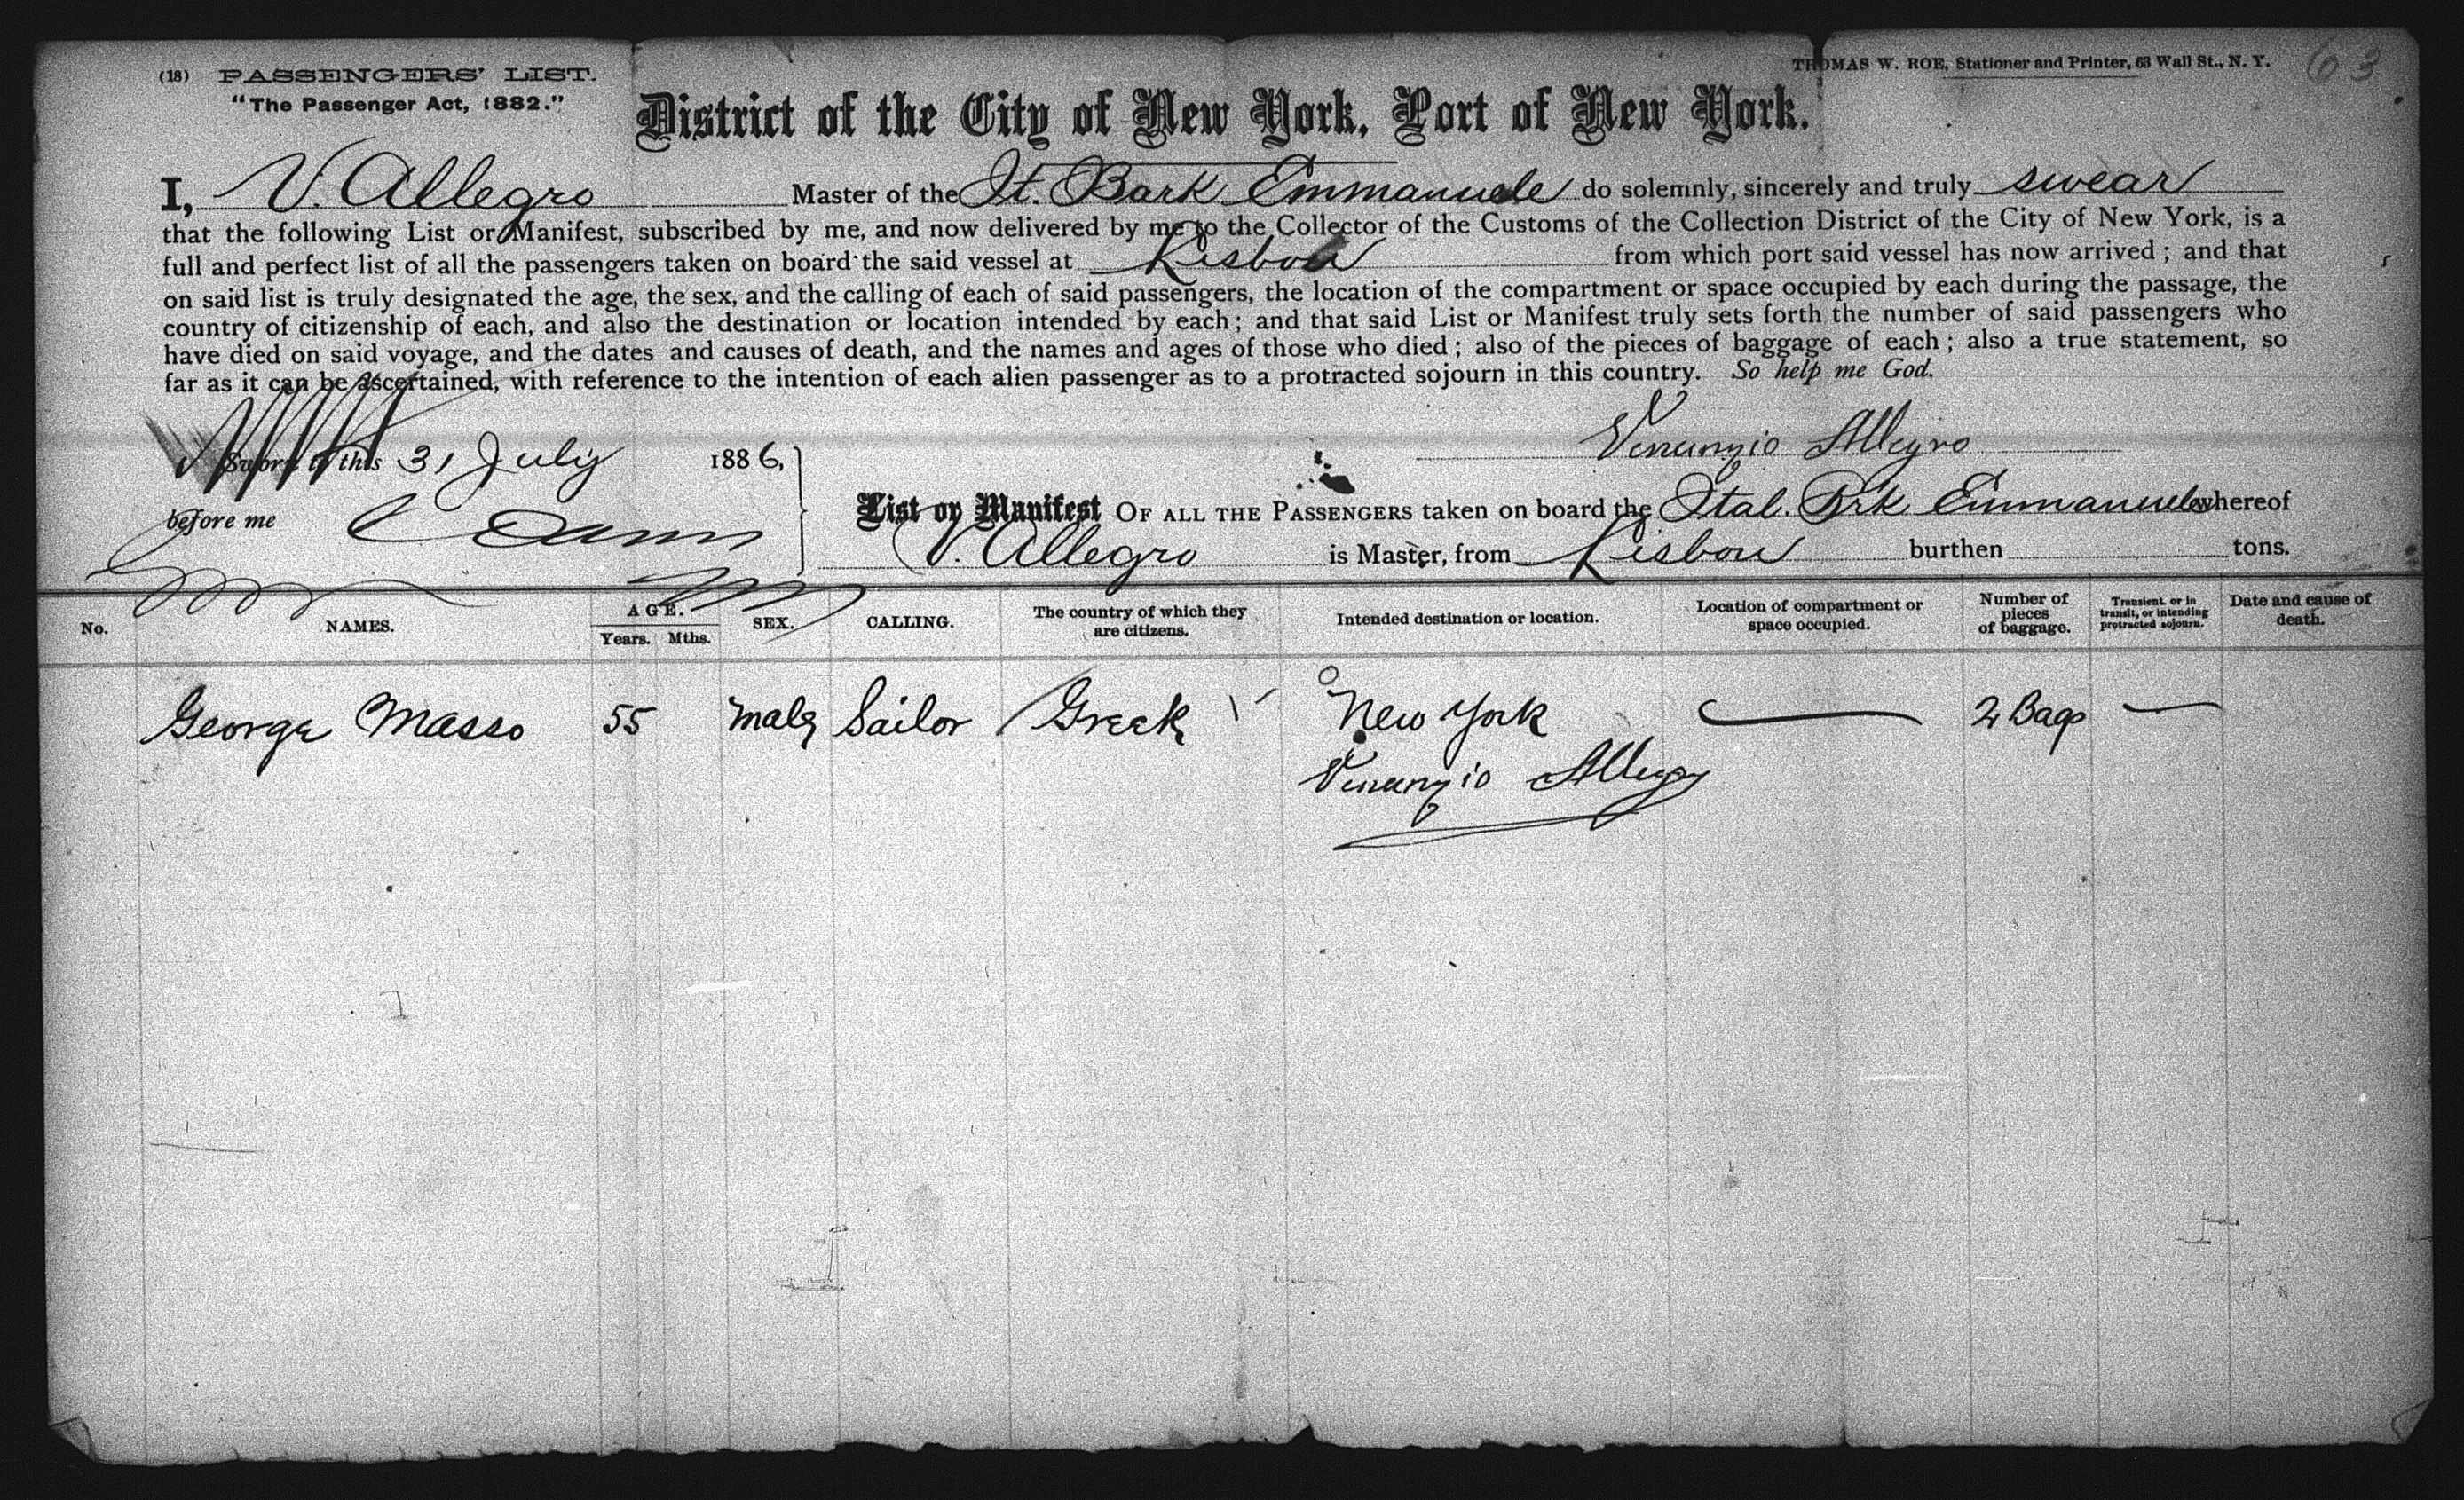 (18) PASSENGERS' LIST.
"The Passenger Act, 1882."
THOMAS W. ROE, Stationer and Printer, 63 Wall St., N. Y.
63
District of the City of New York, Port of New York.
I, V. Allegro Master of the It. Bark Emmanuele do solemnly, sincerely and truly swear
that the following List or Manifest, subscribed by me, and now delivered by me to the Collector of the Customs of the Collection District of the City of New York, is a
full and perfect list of all the passengers taken on board the said vessel at Lisbon from which port said vessel has now arrived; and that
on said list is truly designated the age, the sex, and the calling of each of said passengers, the location of the compartment or space occupied by each during the passage, the
country of citizenship of each, and also the destination or location intended by each; and that said List or Manifest truly sets forth the number of said passengers who
have died on said voyage, and the dates and causes of death, and the names and ages of those who died; also of the pieces of baggage of each; also a true statement, so
far as it can be ascertained, with reference to the intention of each alien passenger as to a protracted sojourn in this country. So help me God.
Venanzio Allegro
Sworn to this 31 July 1886,
before me
List or Manifest OF ALL THE PASSENGERS taken on board the Ital. Brk Emmanuele whereof
V. Allegro is Master, from Lisbon burthen tons.
No. NAMES. AGE. Years. Mths. SEX. CALLING. The country of which they are citizens. Intended destination or location. Location of compartment or space occupied. Number of pieces of baggage. Transient, or in transit, or intending protracted sojourn. Date and cause of death.
George Masso 55 male Sailor Greek New York 2 Bags
Venanzio Allegro